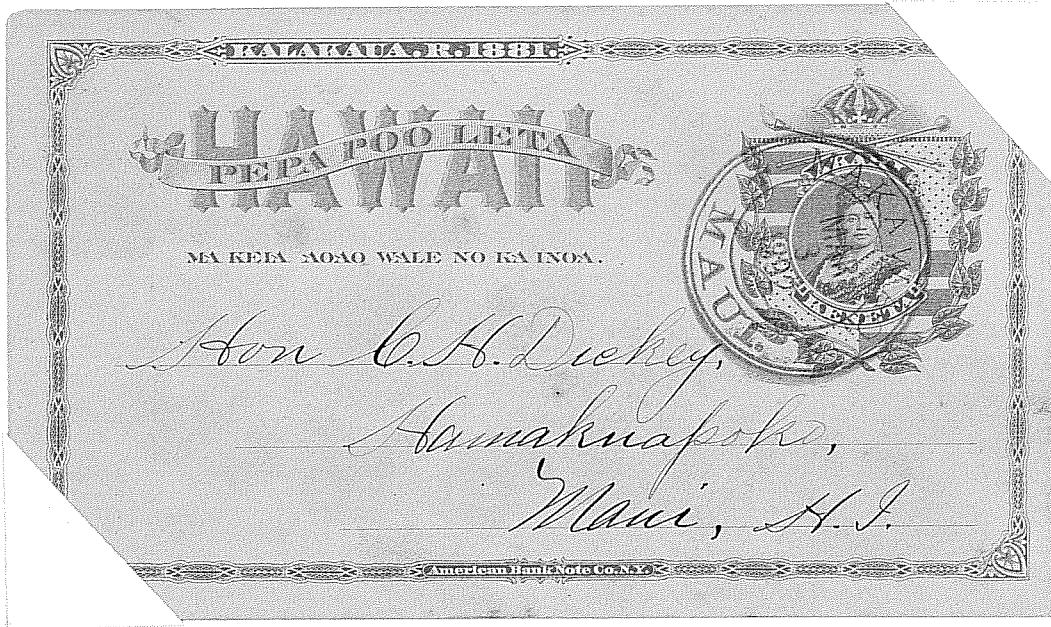 KALAKAUA. R. 1881.
HAWAII
PEPA POO LETA
MA KEIA AOAO WALE NO KA INOA.
MAUI.
Hon C. H. Dickey,
Hamakuapoko,
Maui, H. I.
American Bank Note Co. N.Y.